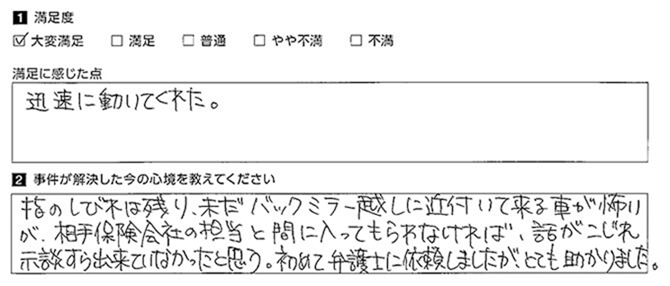 1 満足度
☑ 大変満足 □ 満足 □ 普通 □ やや不満 □ 不満
満足に感じた点
迅速に動いてくれた。
2 事件が解決した今の心境を教えてください
指のしびれは残り、未だバックミラー越しに近付いて来る車が怖い
が、相手保険会社の担当と間に入ってもらわなければ、話がこじれ
示談すら出来ていなかったと思う。初めて弁護士に依頼しましたがとても助かりました。